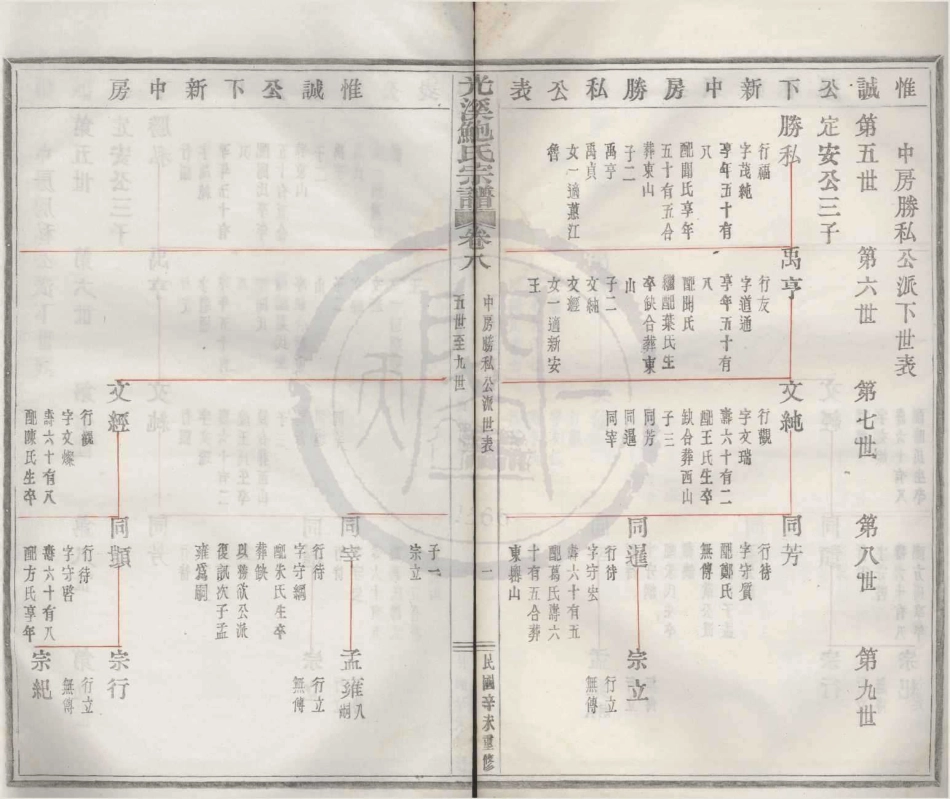 惟誠公下新中房勝私公表
中房勝私公派下世表
第五世
第六世
第七世
第八世
第九世
定安公三子
勝私
行福
字茂純
享年五十有
八
配聞氏享年
五十有五合
葬東山
子二
禹亨
禹貞
女一適蕙江
魯
禹亨
行友
字道通
享年五十有
八
配聞氏
繼配葉氏生
卒缺合葬東
山
子二
文純
文經
女一適新安
王
文純
行觀
字文瑞
壽六十有二
配王氏生卒
缺合葬西山
子三
同芳
同暹
同宰
同芳
行待
字守質
配鄭氏
無傳
同暹
行待
字守宏
壽六十有五
配萬氏壽六
十有五合葬
東㠘山
子一
宗立
宗立
行立
無傳
光溪鮑氏宗譜
卷八
中房勝私公派世表
五世至九世
一
民國辛未重修
惟誠公下新中房
同宰
行待
字守綱
配朱氏生卒
葬缺
以雅欲公派
復誠次子孟
雍爲嗣
孟雍入嗣
行立
無傳
文經
行觀
字文燦
壽六十有八
配陳氏生卒
同顯
行待
字守啓
壽六十有八
配方氏享年
宗行
行立
無傳
宗紀